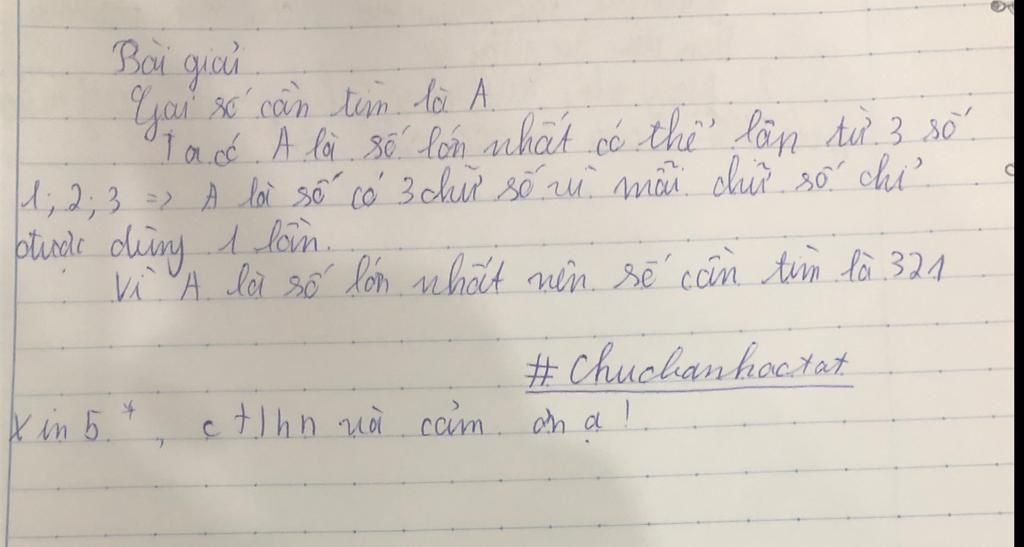 Bài giải
Gọi số cần tìm là A.
Ta có A là số lớn nhất có thể lập từ 3 số
1; 2; 3 => A là số có 3 chữ số vì mỗi chữ số chỉ
được dùng 1 lần.
Vì A là số lớn nhất nên số cần tìm là 321
#Chuchanhoctat
Xin 5*, ctlhn và cảm ơn ạ!